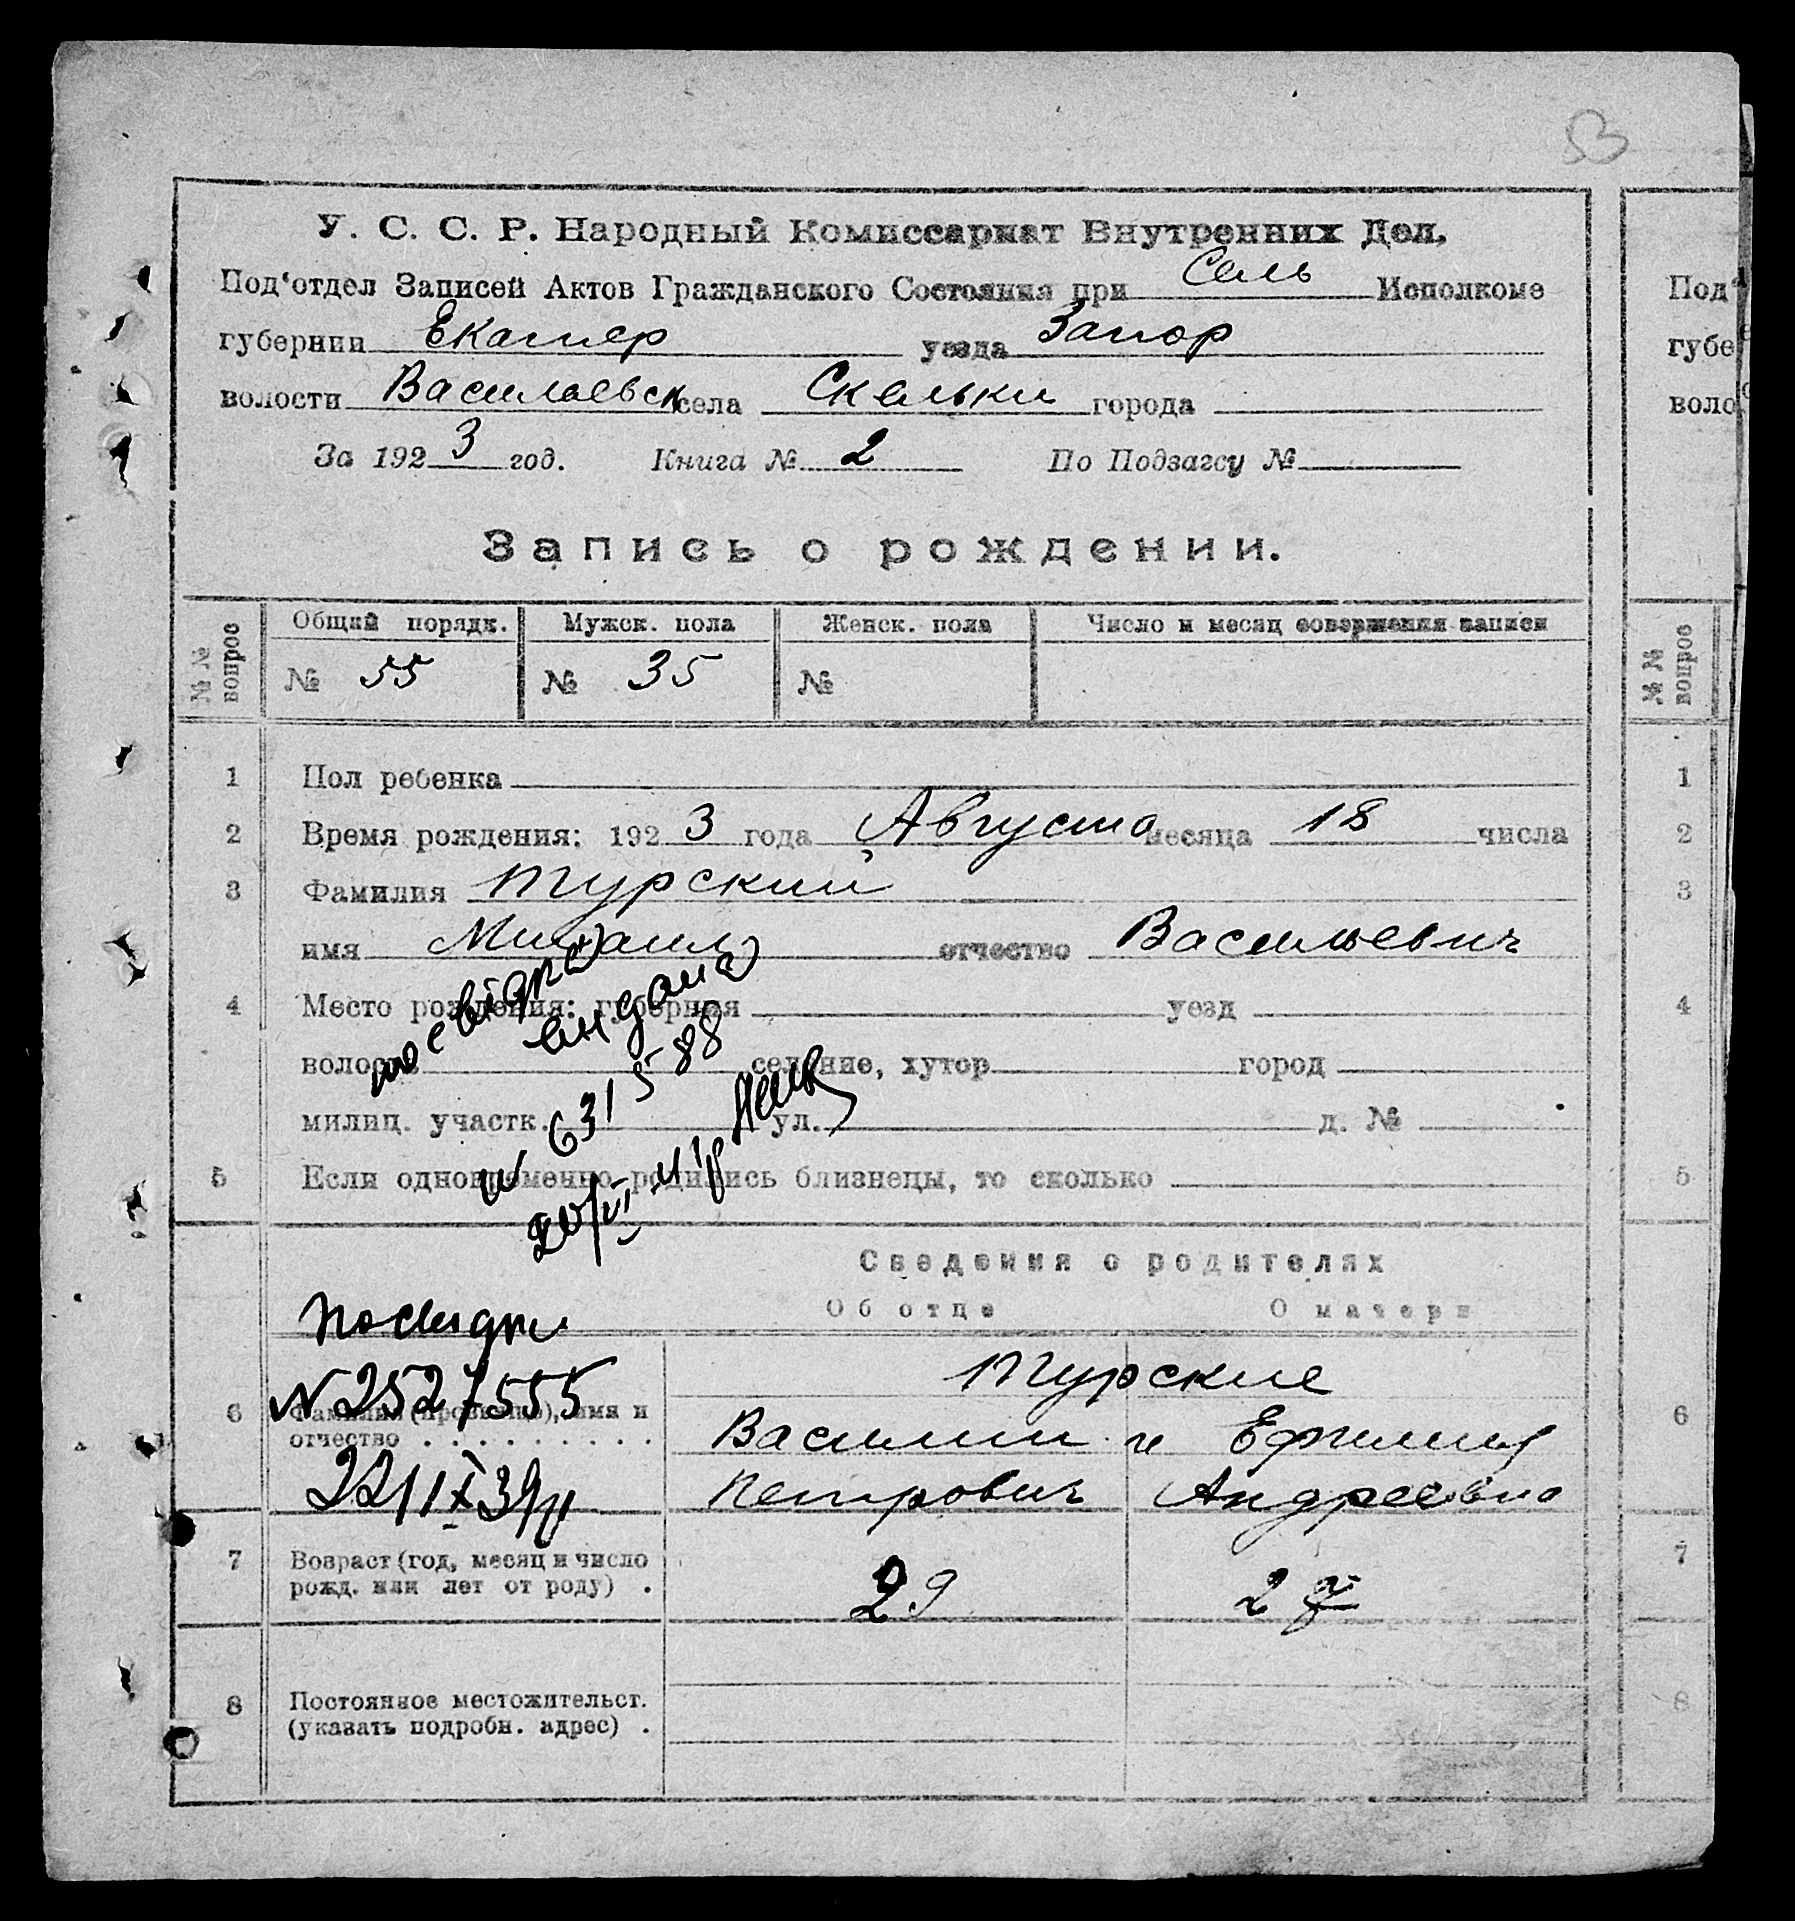 53
У. С. С. Р. Народный Комиссариат Внутренних Дел.
Под‘отдел Записей Актов Гражданского Состояния при Сель Исполкоме
губернии Екатер уезда Запор
волости Васильевск села Скельки города
За 192 3 год. Книга № 2 По Подзагсу №
Запись о рождении.
№№ вопрос
Общий порядк. Мужск. пола Женск. пола Число и месяц совершения записи
№ 55 № 35 №
1 Пол ребенка
2 Время рождения: 192 3 года Августа месяца 18 числа
3 Фамилия Турский
имя Михаил отчество Васильевич
4 Место рождения: губерния уезд
волость селение, хутор город
милиц. участк. ул. д. №
5 Если одновременно родились близнецы, то сколько
видана
631588
20/VI
Сведения о родителях
Об отце О матери
№ 2527555
22/IX 39
Турские
6 Фамилия (прозвище), имя и отчество Василий и Ефимия
Петрович Андреевна
7 Возраст (год, месяц и число рожд. или лет от роду) . 29 2
8 Постоянное местожительст. (указать подробн. адрес) .
Под‘
губе
воло
№№ вопрос
1
2
3
4
5
6
7
8